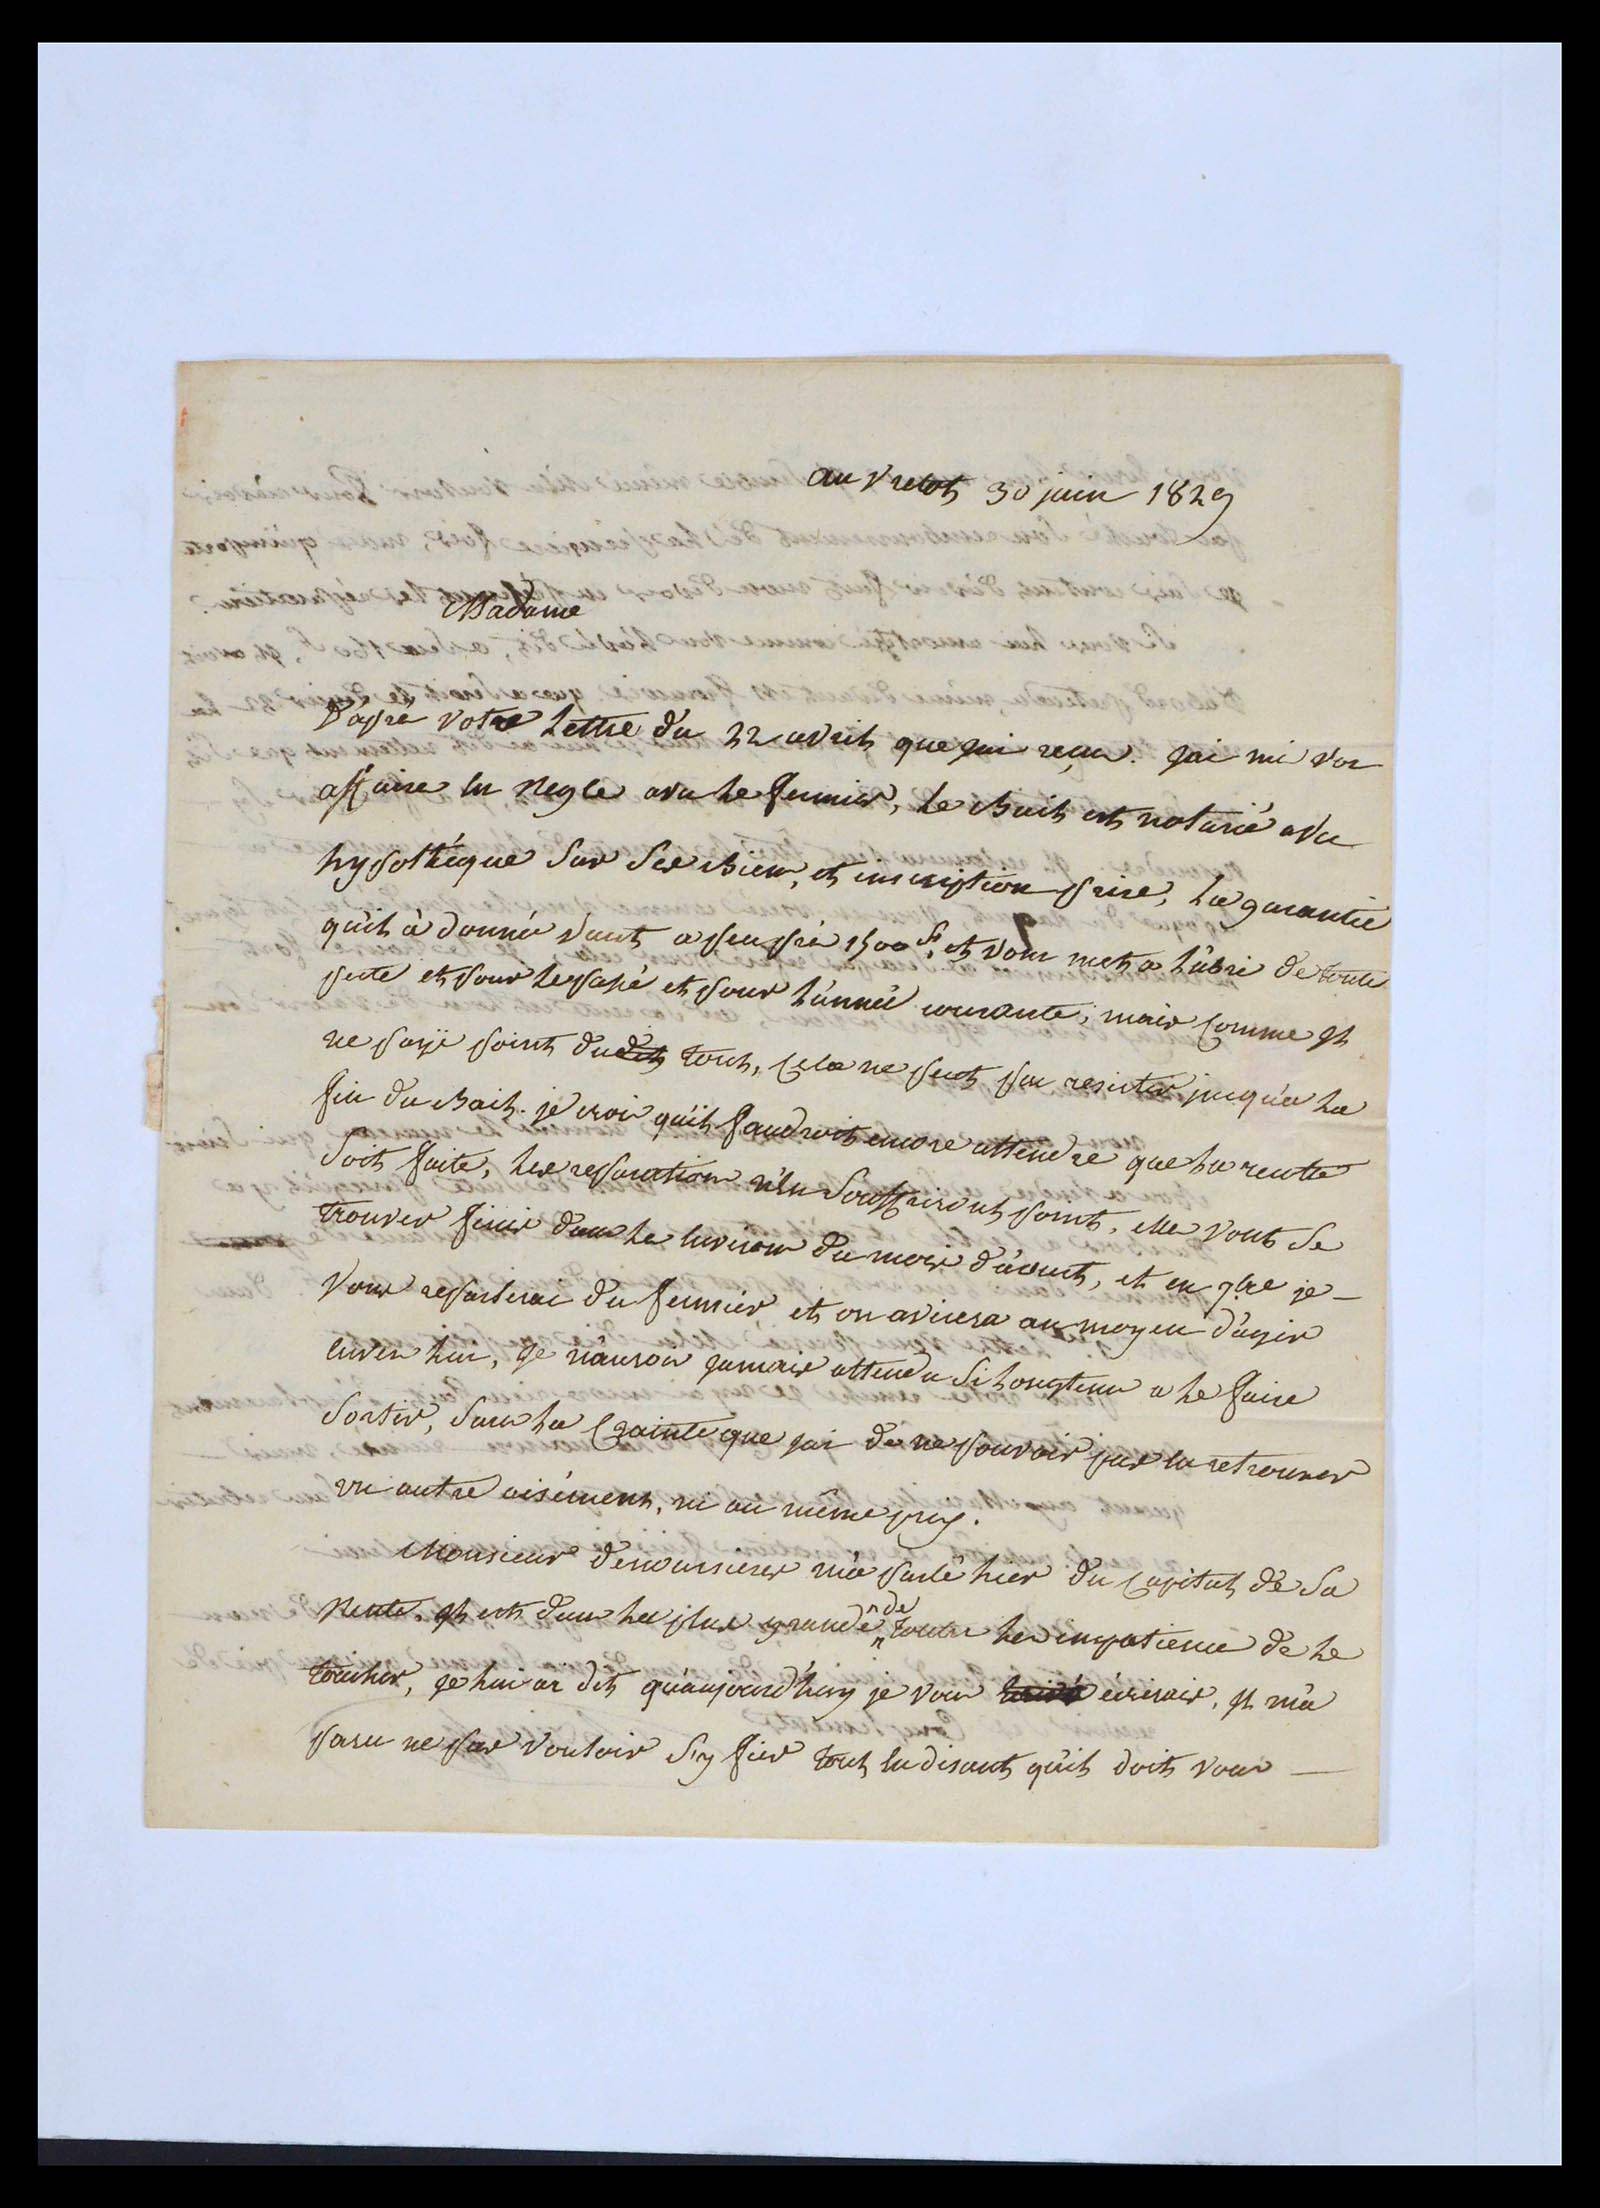 au Vretot 30 juin 1829
Madame
D'apré votre Lettre du 22 avril que jai reçu. jai mi vos
affaire en Regle avec le fermier, Le Bail est notarié avec
hypothéque sur ses Biens, et inscription prise, La garantie
qu'il à donnée vaut a peu prè 1500 f. et vous met a l'abri de toute
perte et pour le passé et pour l'année courante, mais Comme il
ne paye point du tout, Cela ne peut pas resister jusqu'a la
fin du Bail. je croi qu'il faudroit encore attendre que la recolte
soit faite, les reparations n'en souffriront point, elle vont se
trouver finir dans les environs du mois d'aout, et en 7.bre je
vous reparlerai du fermier et on avisera au moyen d'agir
envers lui, Je n'aurois jamais attendu si longtems a le faire
sortir, sans la Crainte que jai de ne pouvoir pas en retrouver
un autre aisément, ni au même prix.
Monsieur m'a parlé hier du Capital de Sa
Rente. il est dans les plus grande de toutes les impatience de le
toucher, Je lui ai dit qu'aujourd'huy je vous écrirais, il m'a
paru ne pas vouloir s'y fier tout en disant qu'il doit vous